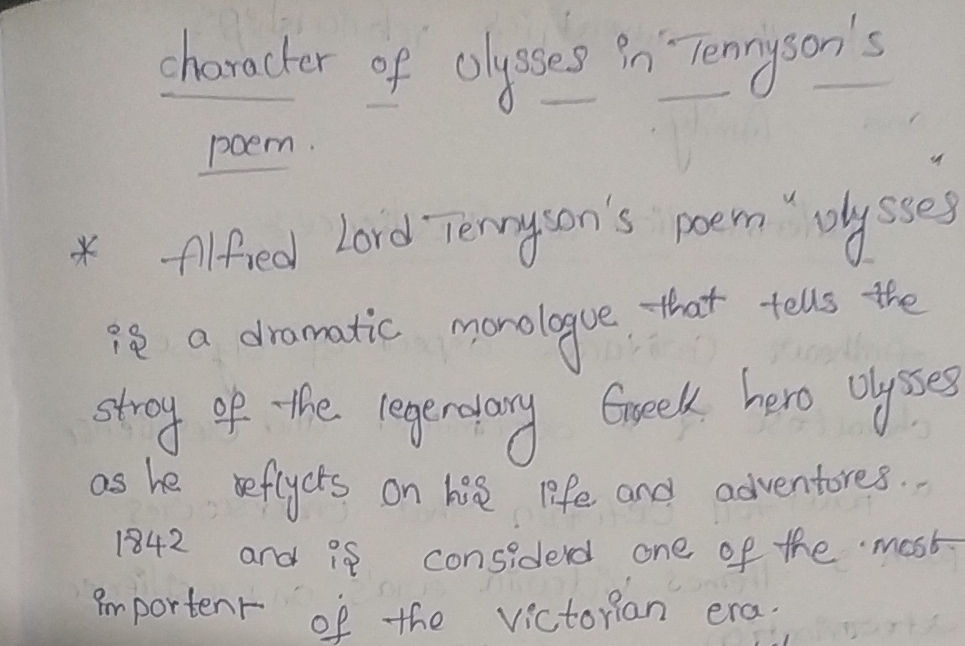 character of Ulysses in Tennyson's
poem.
* Alfred Lord Tennyson's poem "Ulysses"
is a dramatic monologue that tells the
stroy of the legendary Greek hero Ulysses
as he reflycts on his life and adventores..
1842 and is considerd one of the most
importent of the Victorian era.